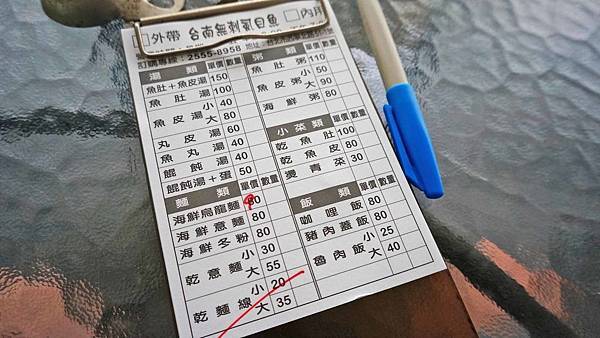 外帶 台南無刺虱目魚 內用
訂購專線：2555-8958 地址：台北
湯類 單價 數量
魚肚+魚皮湯 150
魚肚湯 100
魚皮湯 小 40
大 80
丸皮湯 60
魚丸湯 40
餛飩湯 40
餛飩湯+蛋 50
麵類 單價 數量
海鮮烏龍麵 90
海鮮意麵 80
海鮮冬粉 80
乾意麵 小 30
大 55
乾麵線 小 20
大 35
粥類 單價 數量
魚肚粥 110
魚皮粥 小 50
大 90
海鮮粥 80
小菜類 單價 數量
乾魚肚 100
乾魚皮 80
燙青菜 30
飯類 單價 數量
咖哩飯 80
豬肉蓋飯 80
魯肉飯 小 25
大 40